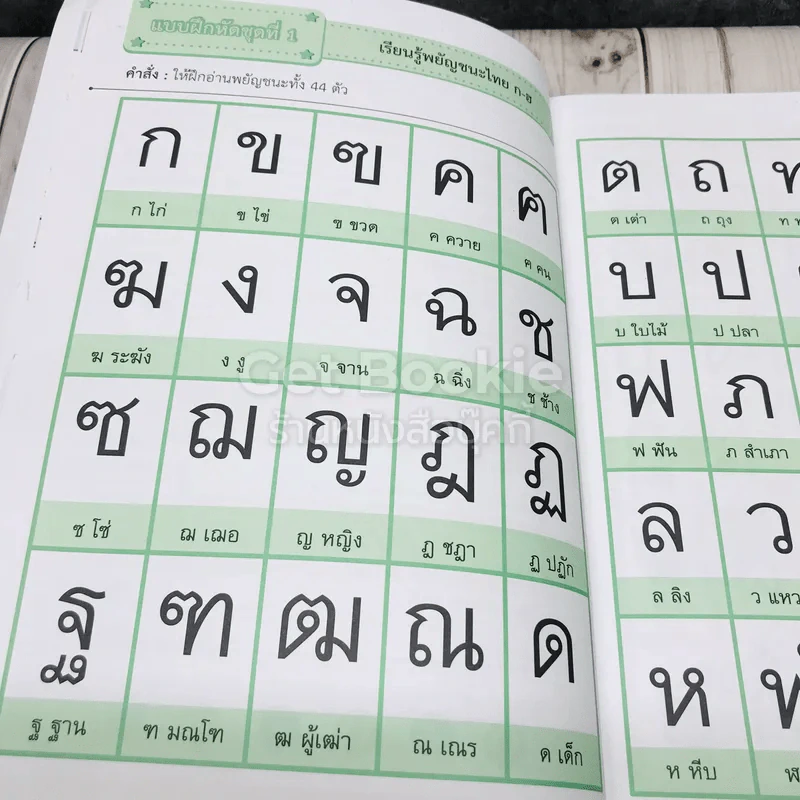 แบบฝึกหัดชุดที่ 1
เรียนรู้พยัญชนะไทย ก-ฮ
คำสั่ง : ให้ฝึกอ่านพยัญชนะทั้ง 44 ตัว
ก ข ฃ ค ฅ
ก ไก่ ข ไข่ ฃ ขวด ค ควาย ฅ คน
ฆ ง จ ฉ ช
ฆ ระฆัง ง งู จ จาน ฉ ฉิ่ง ช ช้าง
Get Bookie
ร้านหนังสือบุ๊คกี้
ซ ฌ ญ ฎ ฏ
ซ โซ่ ฌ เฌอ ญ หญิง ฎ ชฎา ฏ ปฏัก
ฐ ฑ ฒ ณ ด
ฐ ฐาน ฑ มณโฑ ฒ ผู้เฒ่า ณ เณร ด เด็ก
ต ถ ท
ต เต่า ถ ถุง ท
บ ป
บ ใบไม้ ป ปลา
ฟ ภ
ฟ ฟัน ภ สำเภา
ล ว
ล ลิง ว แหว
ห
ห หีบ